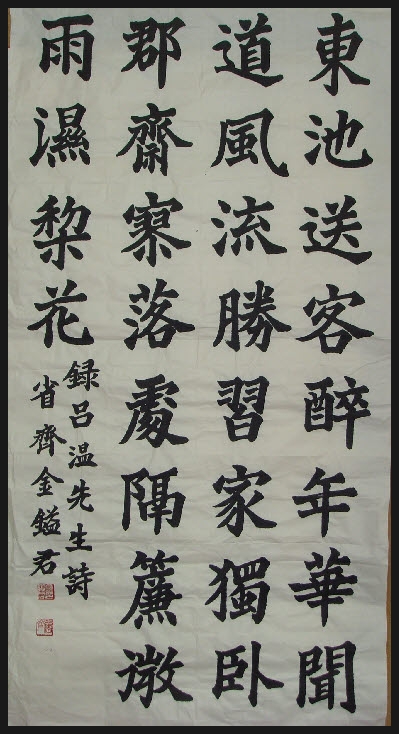 東池送客醉年華聞
道風流勝習家獨臥
郡齋寥落處隔簾微
雨濕棃花
録呂温先生詩
省齊金鎰君